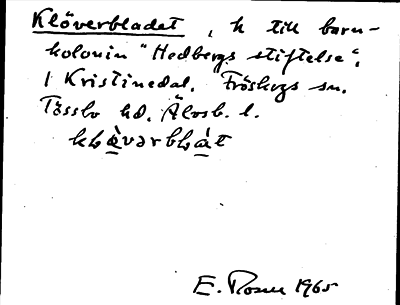 Klöverbladet, h till barn-
kolonin "Hedbergs stiftelse",
1 Kristinedal, Fröskogs sn.
Tössbo hd. Älvsb. l.
E. Rosén 1965